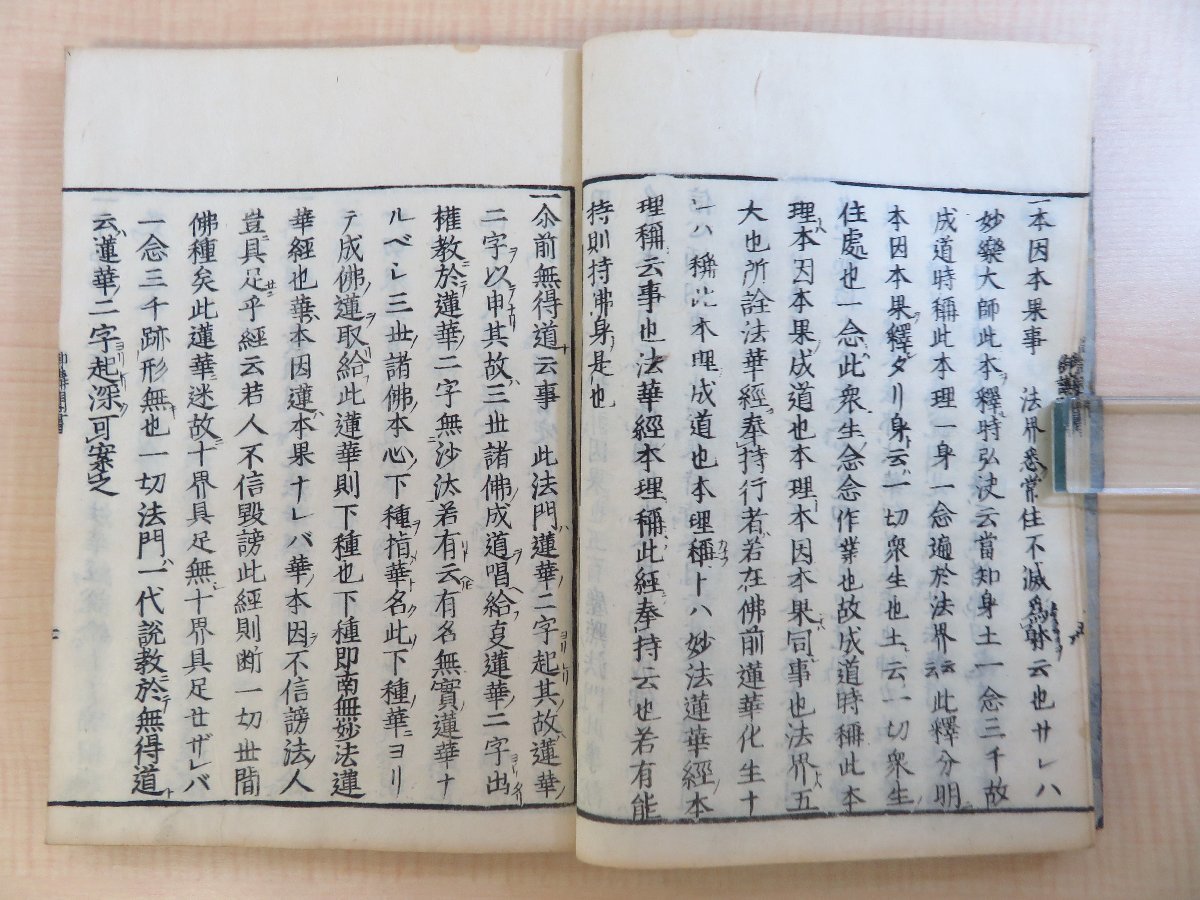 一本因本果事 法界悉常住不滅為躰云也サレハ
妙樂大師此本釋時弘決云當知身土一念三千故
成道時稱此本理一身一念遍於法界云云此釋分明
本因本果釋タリ身云一切衆生也土云一切衆生
住處也一念此衆生念念作業也故成道時稱此本
理本因本果成道也本理本因本果同事也法界五
大也所詮法華經奉持行者若在佛前蓮華化生ト
ハ稱此本理成道也本理稱トハ妙法蓮華經本
理稱云事也法華經本理稱此經奉持云也若有能
持則持佛身是也
一尒前無得道云事 此法門蓮華二字起其故蓮華
二字以申其故三世諸佛成道唱給夏蓮華二字出
權教於蓮華二字無沙汰若有云有名無實蓮華ナ
ルベシ三世諸佛本心下種指華名此下種華ヨリ
テ成佛蓮取給此蓮華則下種也下種即南無妙法蓮
華經也華本因蓮本果ナレバ華本因不信謗法人
豈具足乎經云若人不信毀謗此經則断一切世間
佛種矣此蓮華迷故十界具足無十界具足セザレバ
一念三千跡形無也一切法門一代說教於無得道
云蓮華二字起深可案之